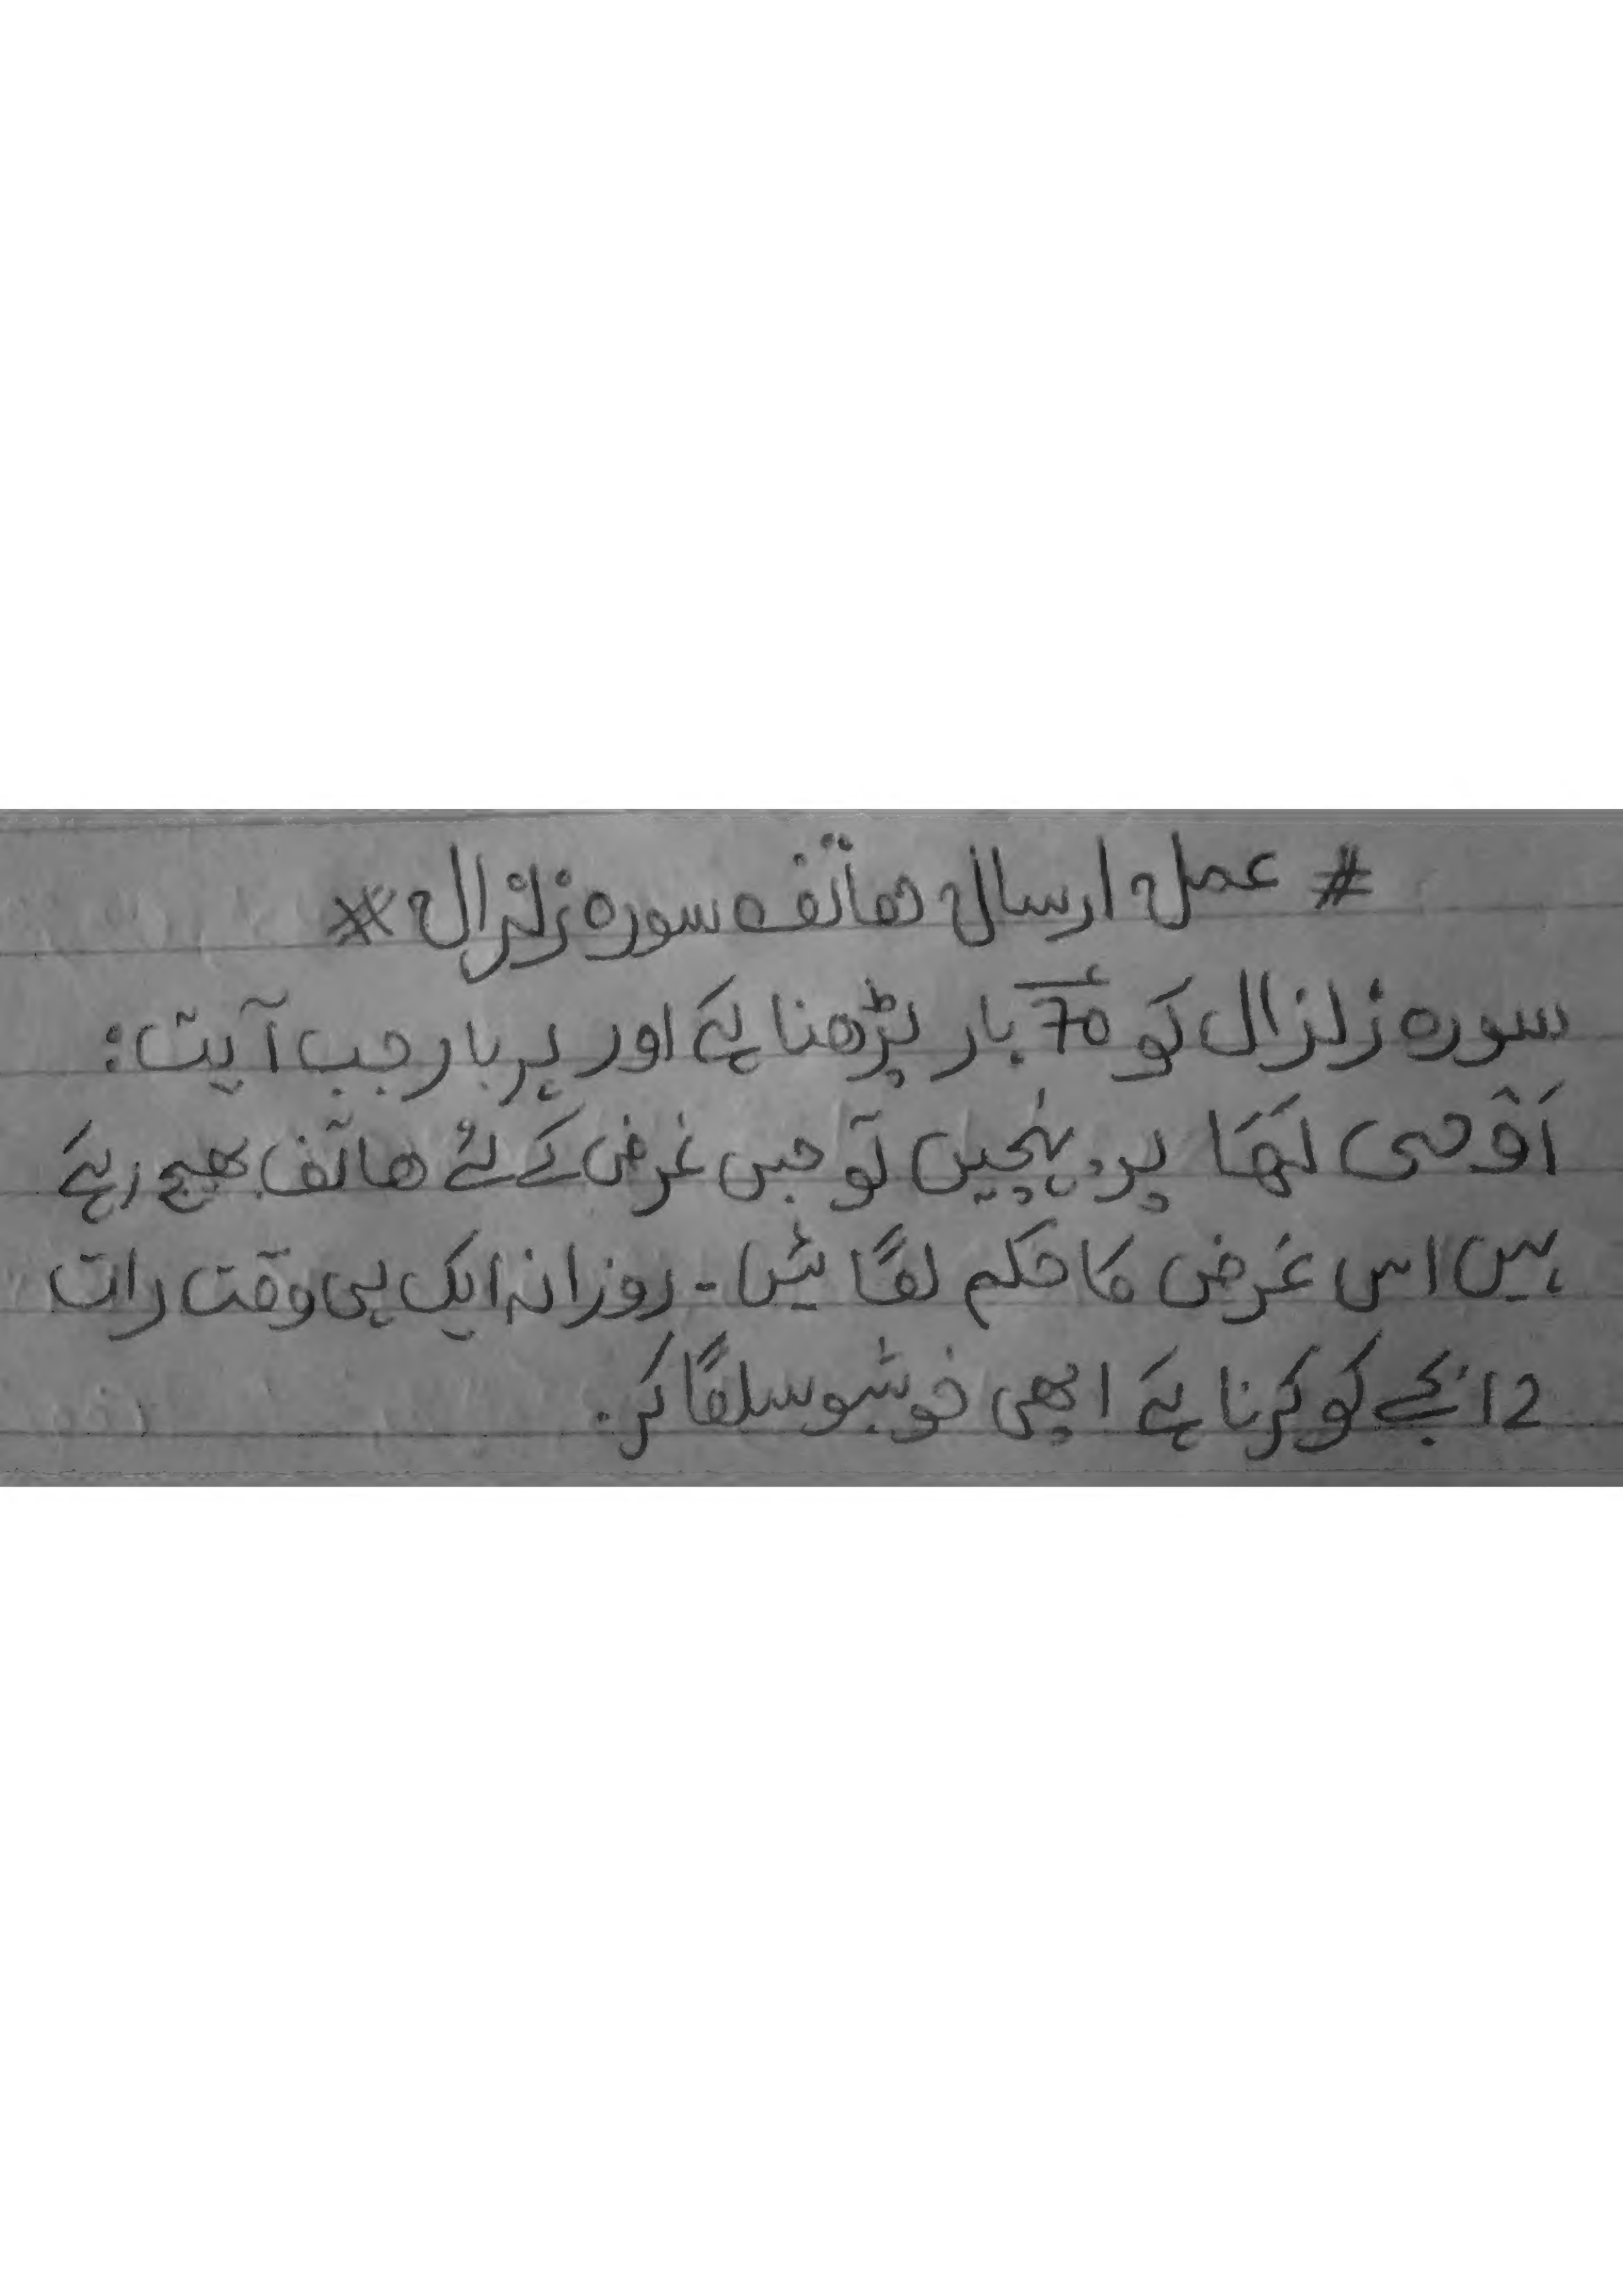 # عمل ارسال ھاتف سورہ زلزال #
سورہ زلزال کو 70 بار پڑھنا ہے اور ہر بار جب آیت:
اَوْحیٰ لَھَا پر پہنچیں تو جس غرض کے لئے ھاتف بھیج رہے
ہیں اس غرض کا حکم لگائیں - روزانہ ایک ہی وقت رات
12 بجے کو کرنا ہے اچھی خوشبو سلگا کر.